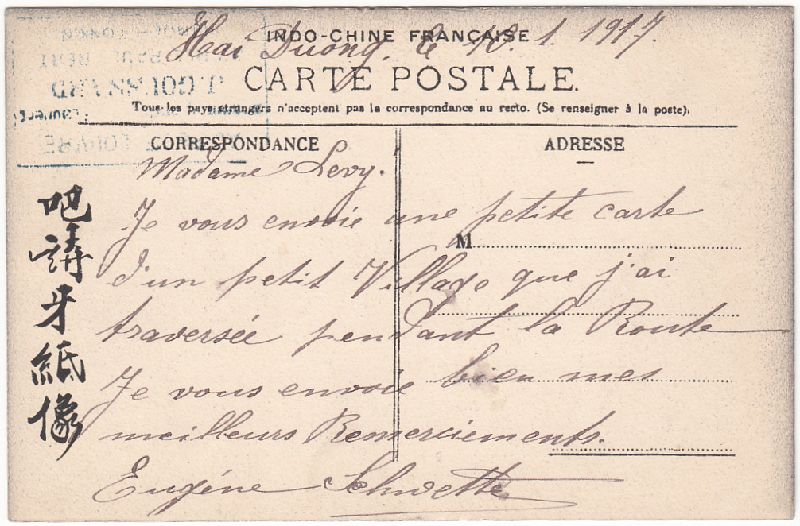 INDO-CHINE FRANÇAISE
Hai Duong, le 10. 1 1917.
CARTE POSTALE.
Tous les pays étrangers n'acceptent pas la correspondance au recto. (Se renseigner à la poste).
CORRESPONDANCE
ADRESSE
Madame Levy.
Je vous envoie une petite carte
M
d'un petit Village que j'ai
traversée pendant la Route
Je vous envoie bien mes
meilleurs Remerciements.
Eugéne
吧講牙紙像